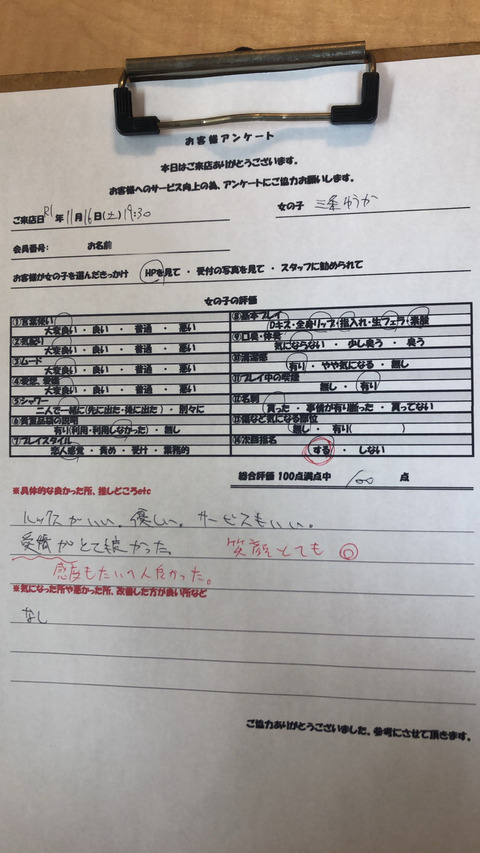 お客様アンケート
本日はご来店ありがとうございます。
お客様へのサービス向上の為、アンケートにご協力お願いします。
ご来店日 R1年 11月16日(土)19:30 女の子 三条ゆうか
会員番号: お名前
お客様が女の子を選んだきっかけ HPを見て ・ 受付の写真を見て ・ スタッフに勧められて
女の子の評価
①言葉使い
大変良い ・ 良い ・ 普通 ・ 悪い
②気配り
大変良い ・ 良い ・ 普通 ・ 悪い
③ムード
大変良い ・ 良い ・ 普通 ・ 悪い
④愛想、愛嬌
大変良い ・ 良い ・ 普通 ・ 悪い
⑤シャワー
二人で一緒に(先に出た・後に出た) ・ 別々に
⑥貴重品袋の説明
有り(利用・利用しなかった) ・ 無し
⑦プレイスタイル
恋人感覚 ・ 責め ・ 受け ・ 業務的
⑧基本プレイ
Dキス・全身リップ・指入れ・生フェラ・素股
⑨口臭・体臭
気にならない ・ 少し臭う ・ 臭う
⑩清潔感
有り ・ やや気になる ・ 無し
⑪プレイ中の喫煙
無し ・ 有り
⑫名刺
貰った ・ 事情が有り断った ・ 貰ってない
⑬傷など気になる部位
無し ・ 有り( )
⑭次回指名
する ・ しない
総合評価 100点満点中 100 点
※具体的な良かった所、推しどころetc
ルックスがいい。優しい。サービスもいい。
愛嬌がとても良かった。 笑顔とても◎
感度もたいへん良かった。
※気になった所や悪かった所、改善した方が良い所など
なし
ご協力ありがとうございました。参考にさせて頂きます。